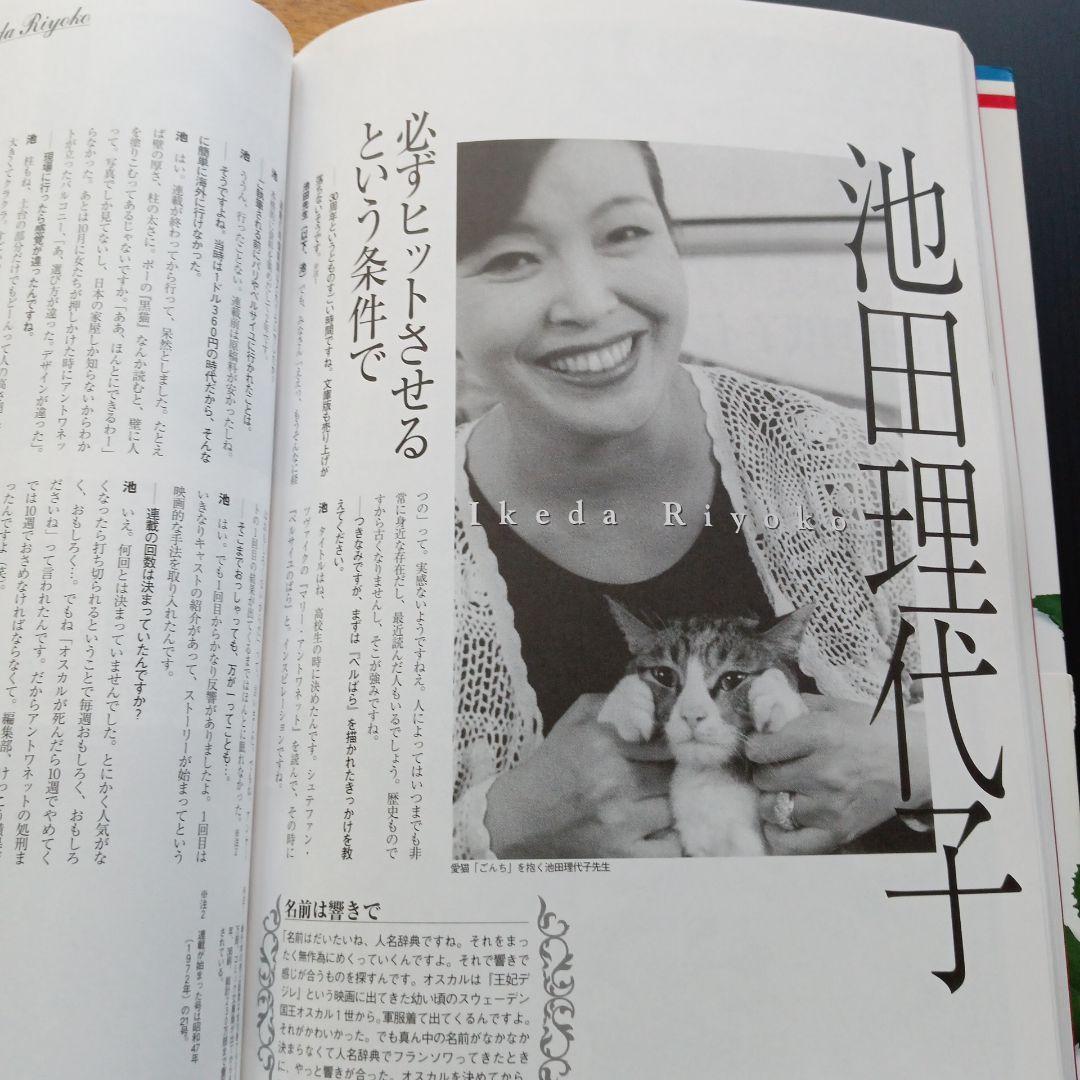 池田理代子
Ikeda Riyoko
必ずヒットさせる
という条件で
――30周年というとものすごい時間ですね。文庫版も売り上げが
落ちないそうです。
つの」って。実感ないようですねえ。人によってはいつまでも非
常に身近な存在だし、最近読んだ人もいるでしょう。歴史もので
すから古くなりませんし、そこが強みですね。
――つきなみですが、まずは『ベルばら』を描かれたきっかけを教
えてください。
池 タイトルはね、高校生の時に決めたんです。シュテファン・
ツヴァイクの『マリー・アントワネット』を読んで、その時に
『ベルサイユのばら』と。インスピレーションですね。
愛猫「ごんち」を抱く池田理代子先生
名前は響きで
「名前はだいたいね、人名辞典ですね。それをまっ
たく無作為にめくっていくんですよ。それで響きで
感じが合うものを探すんです。オスカルは『王妃デ
ジレ』という映画に出てきた幼い頃のスウェーデン
国王オスカル1世から。軍服着て出てくるんですよ。
それがかわいかった。でも真ん中の名前がなかなか
決まらなくて人名辞典でフランソワってきたとき
に、やっと響きが合った。オスカルを決めてから
da Riyoko
――ご執筆される前にパリやベルサイユに行かれたことは。
池 ううん、行ったことない。連載前は原稿料が安かったしね。
――そうですよね。当時は1ドル360円の時代だから、そんな
に簡単に海外に行けなかった。
池 はい。連載が終わってから行って、呆然としました。たとえ
ば壁の厚さ、柱の太さに。ポーの『黒猫』なんか読むと、壁に人
を塗りこむってあるじゃないですか。「ああ、ほんとにできるわー」
って。写真でしか見てないし、日本の家屋しか知らないからわか
らなかった。あとは10月に女たちが押しかけた時にアントワネッ
トが立ったバルコニー、「あ、選び方が違った。デザインが違った」。
――現場に行ったら感覚が違ったんですね。
池 柱もね、土台の部分だけでもどーんって人の高さ
大きくてクラクラ
――そこまでおっしゃっても、万が一ってことも…。
池 はい。でも1回目からかなり反響がありましたよ。1回目は
いきなりキャストの紹介があって、ストーリーが始まってという
映画的な手法を取り入れたんです。
――連載の回数は決まっていたんですか?
池 いえ。何回とは決まっていませんでした。とにかく人気がな
くなったら打ち切られるということで毎週おもしろく、おもしろ
く、おもしろく…。でもね「オスカルが死んだら10週でやめてく
ださいね」って言われたんです。だからアントワネットの処刑ま
では10週でおさめなければならなくて。編集部、けっこう
ったんですよ(笑
※注2 連載が始まった号は昭和47年
(1972年)の21号。